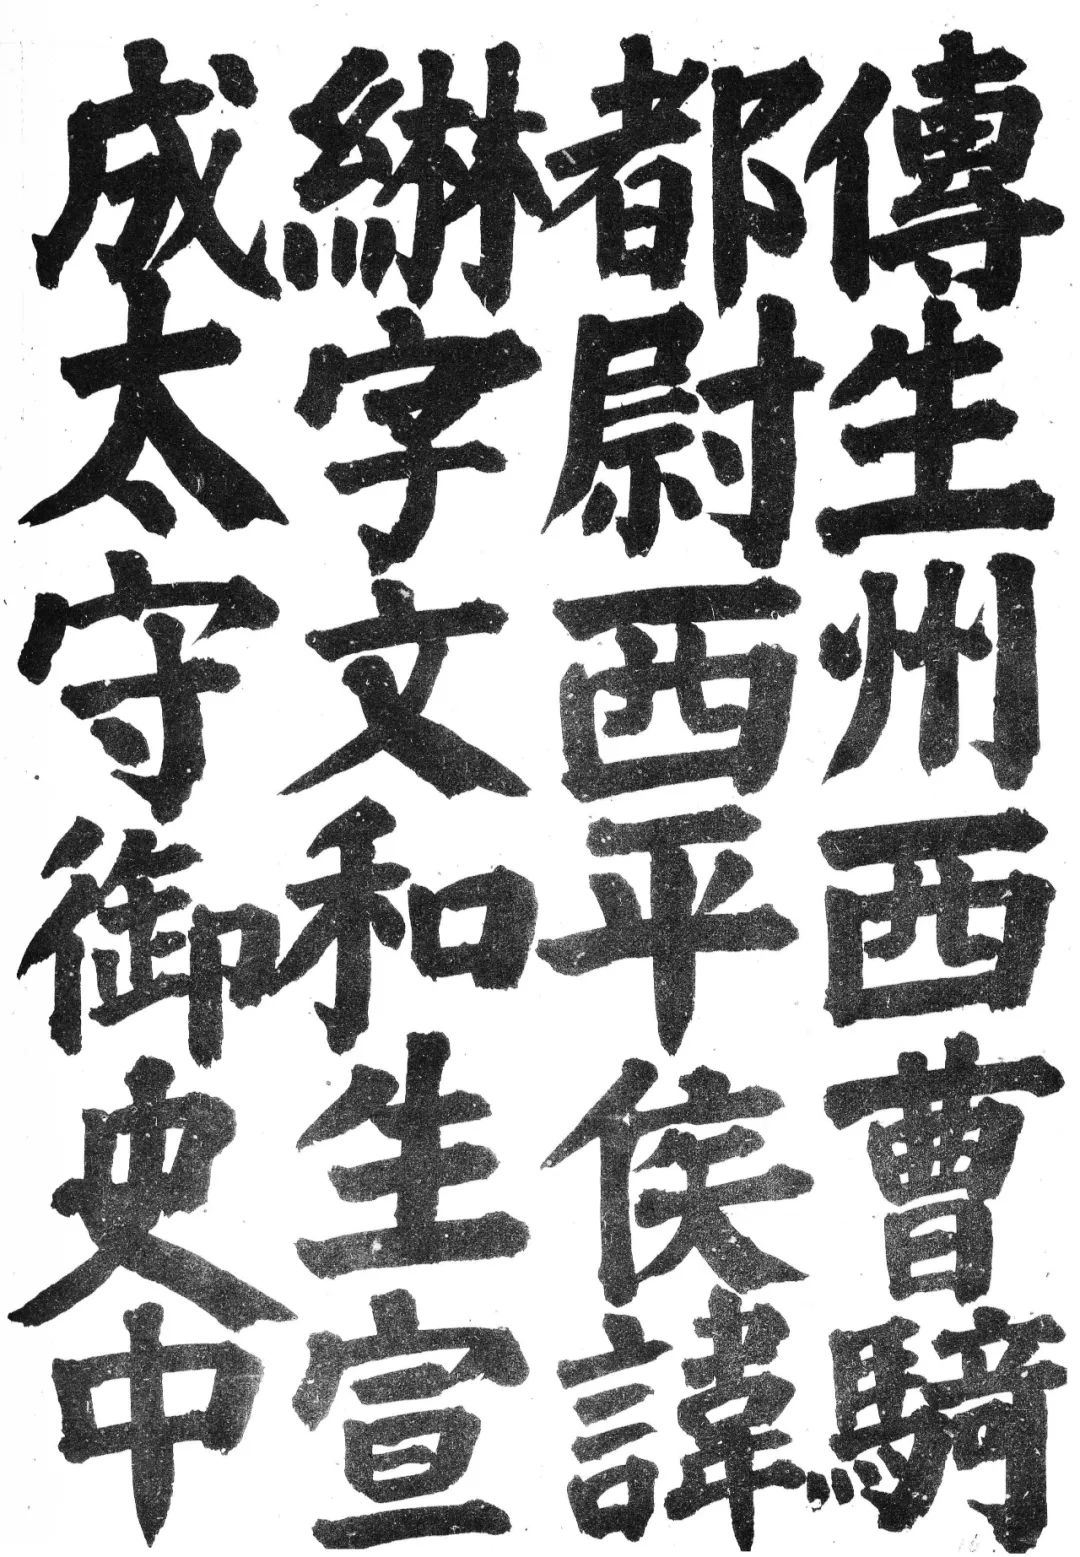 傳生州西曹騎
都尉西平侯諱
綝字文和生宣
成太守御史中